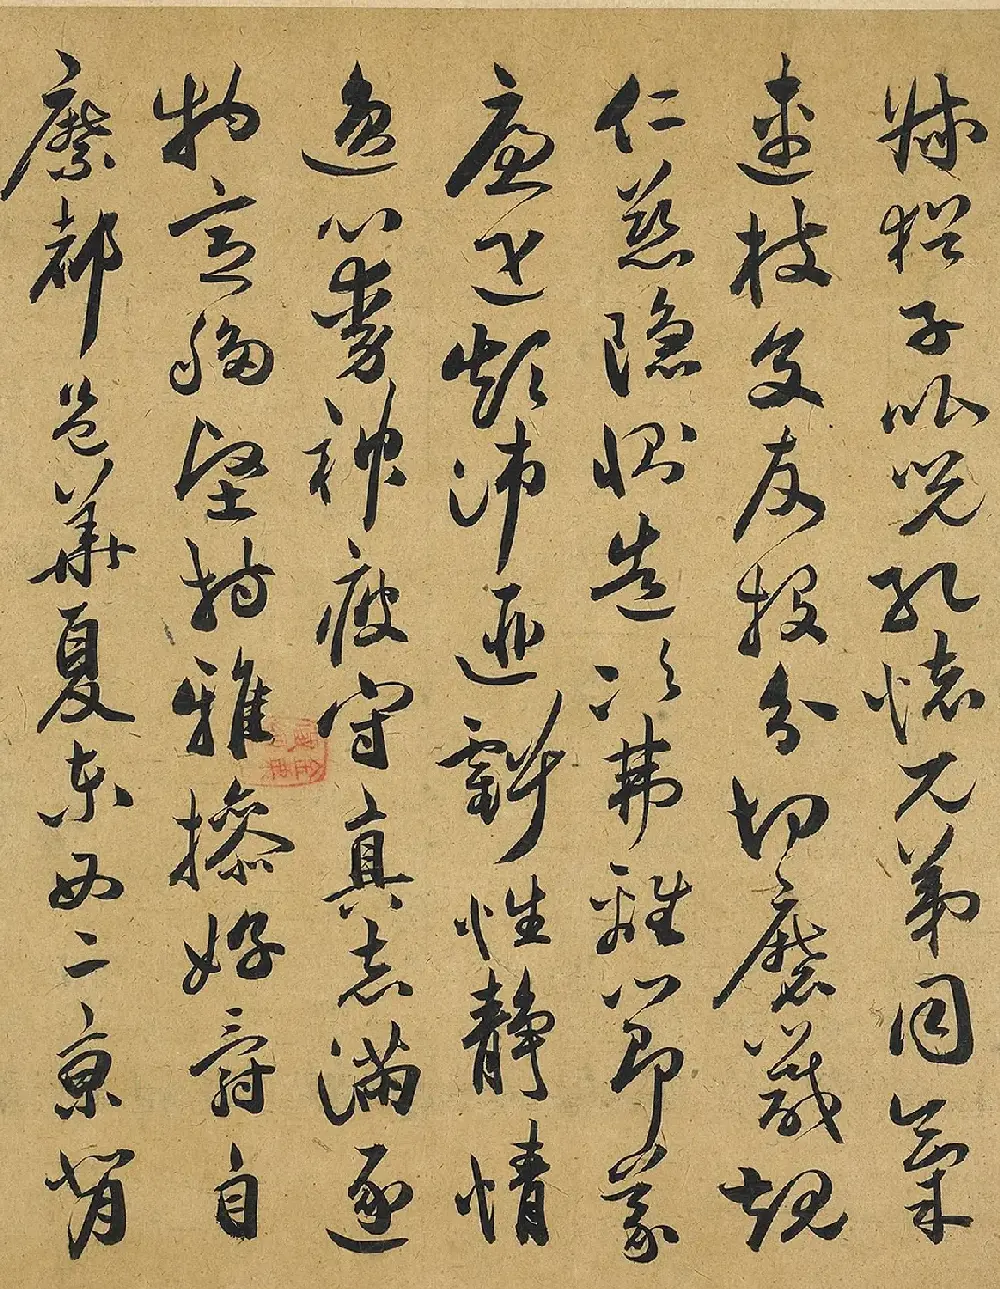 叔猶子比兒孔懷兄弟同氣
連枝交友投分切磨箴規
仁慈隱惻造次弗離節義
廉退顛沛匪虧性靜情
逸心動神疲守真志滿逐
物意移堅持雅操好爵自
縻都邑華夏東西二京背